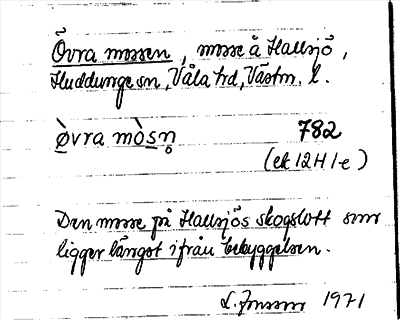 Övra mossen, mosse å Hallsjö,
Huddunge sn, Våla hd, Västm. l.
ø̀vra mòsn̥ 782
(ek 12 H 1 e)
Den mosse på Hallsjös skogslott som
ligger längst ifrån bebyggelsen.
L. Jonsson 1971